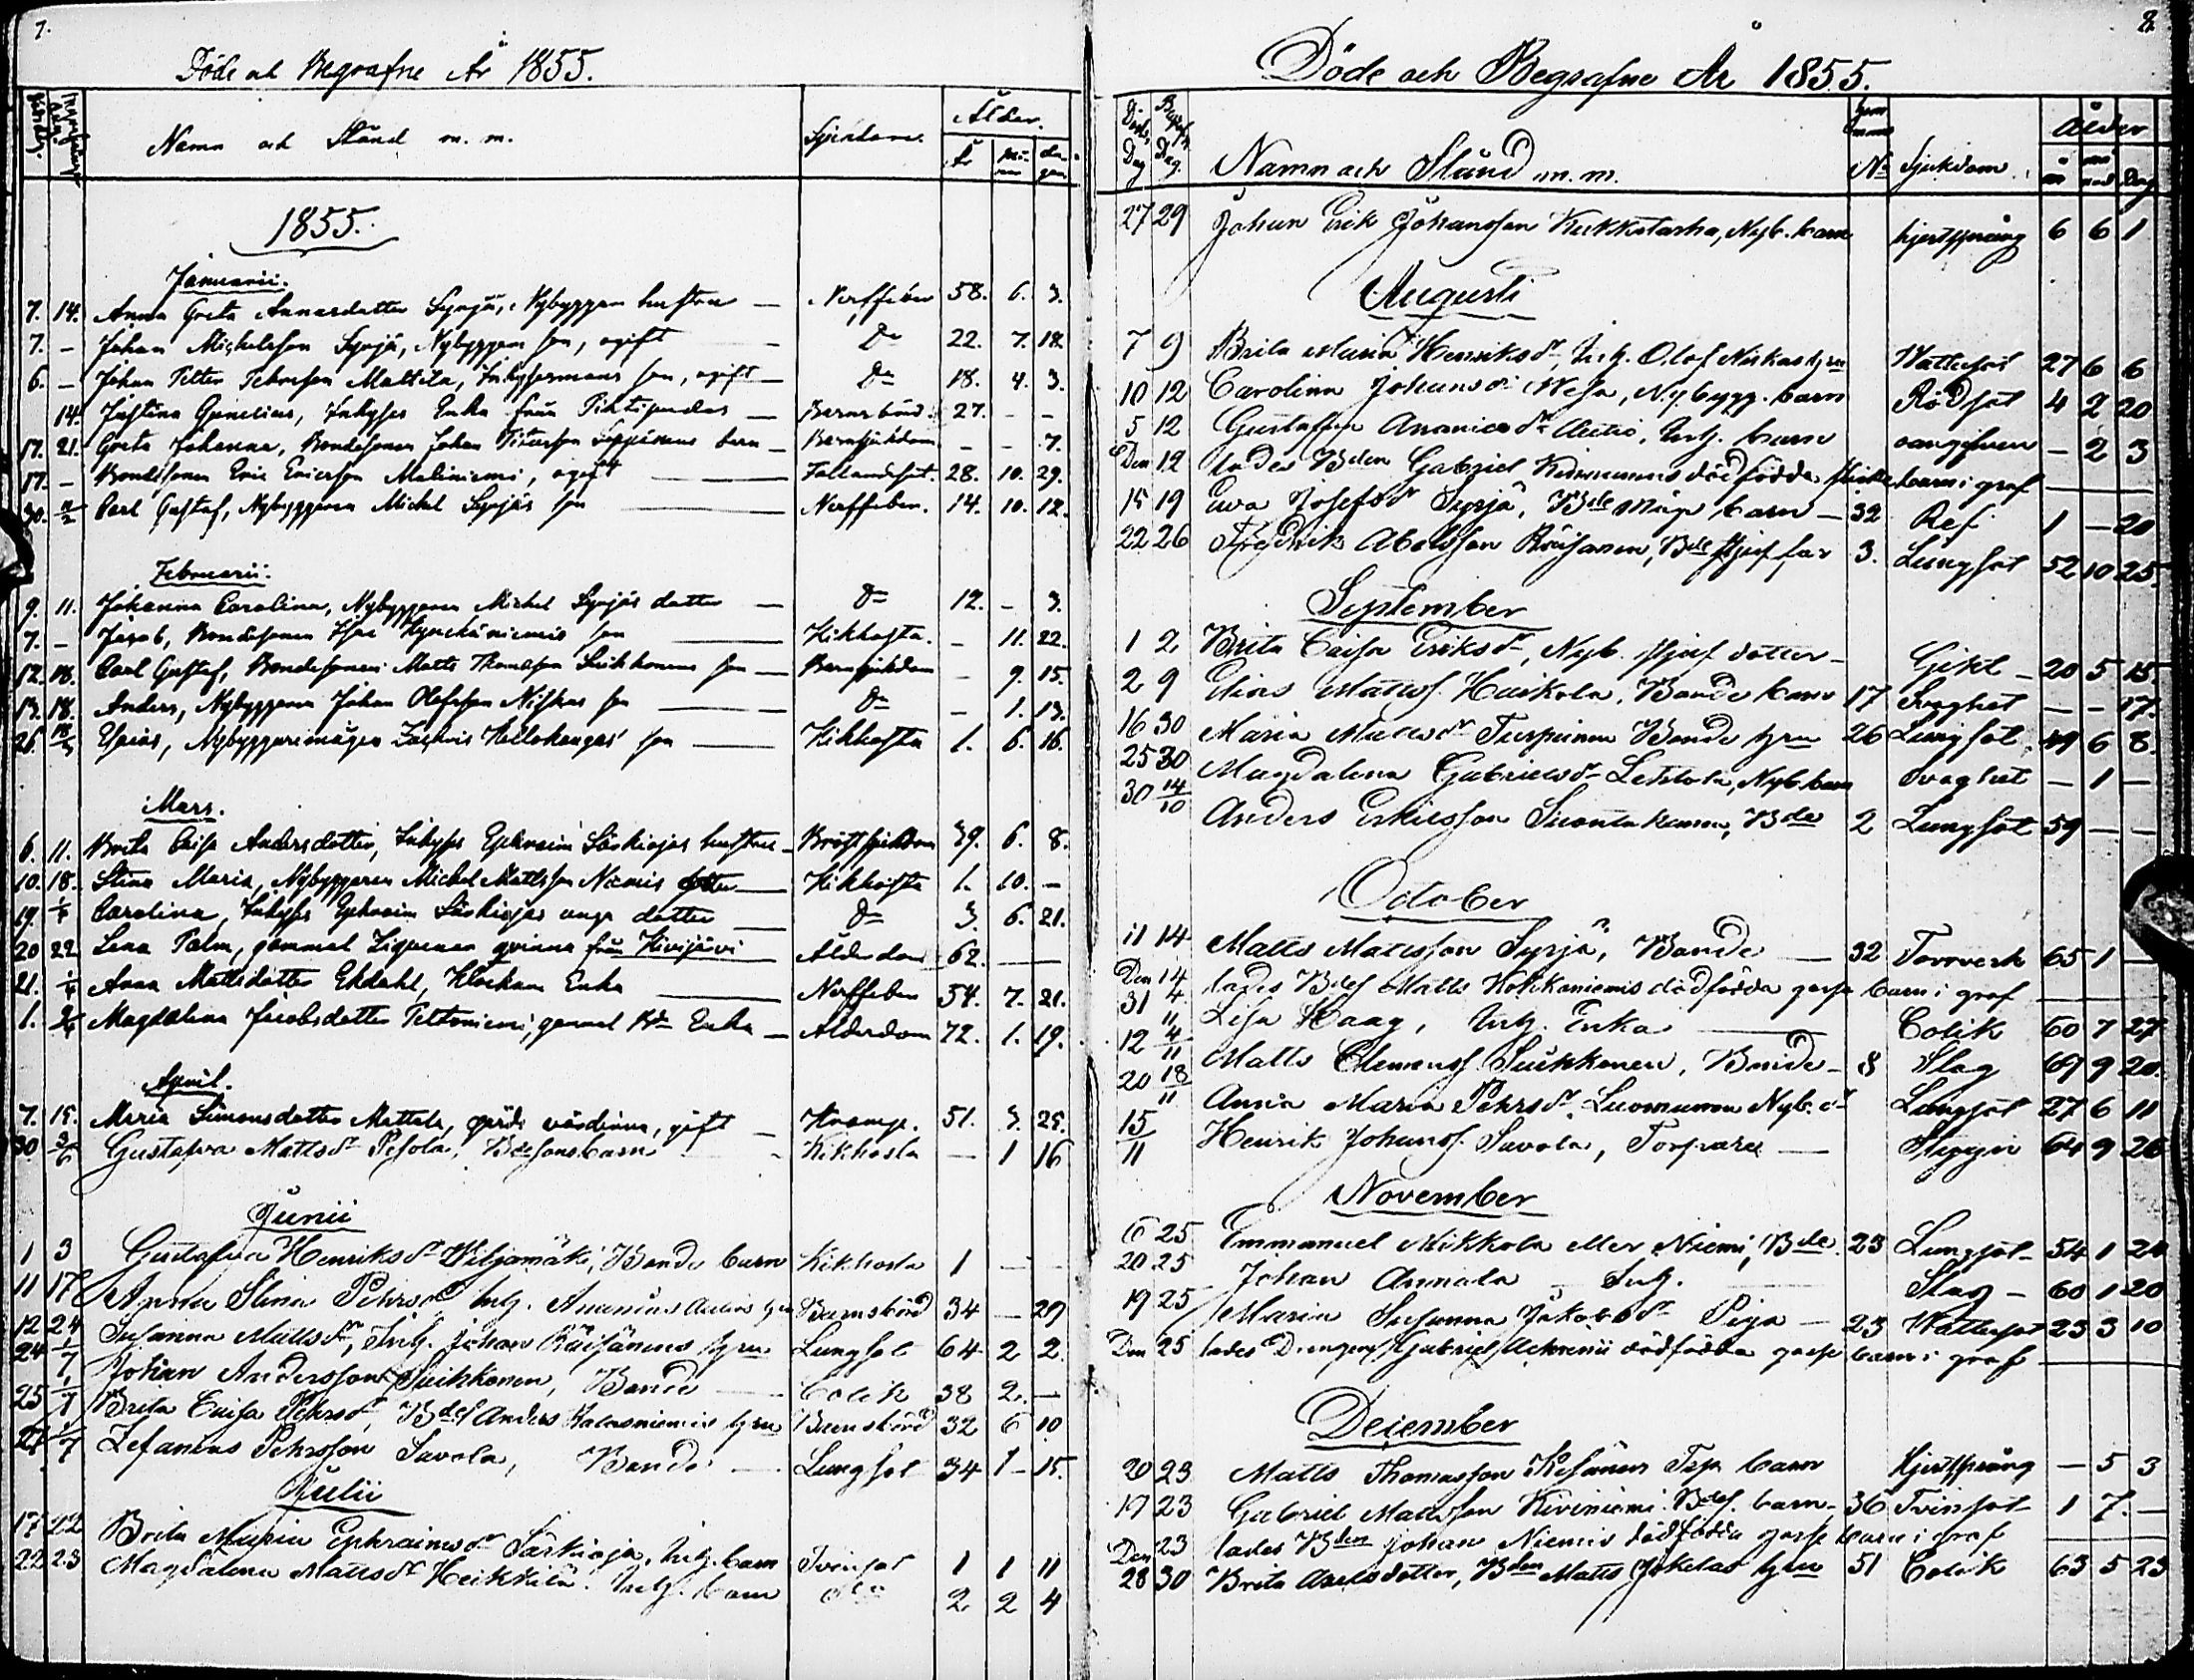 7.
Döde och Begrafne År 1855.
Namn och Stånd m. m.
Sjukdom.
Ålder.
År
1855.
Januarii.
7. 14. Anna Greta Syrjä, Nybyggare hustru — Nerffeber 58. 6. 3.
7. — Johan Michelsson Syrjä, Nybyggare son, ogift — Do 22. 7. 18.
6. — Johan Petter Pehrsson Mattila, Inhysesmans son, ogift — Do 18. 4. 3.
14. Justina Gunelius, Inhyses Enka från — Barnsbörd 27. — —
17. 21. Greta Johanna, Bondesonen Johan barn — Barnsjukdom — — 7.
17. — Bondesonen Eric Ericsson Maliniemi, ogift — Fallandesot. 28. 10. 29.
30. Carl Gustaf, Nybyggaren Michel Syrjäs son — Nerffeber. 14. 10. 12.
Februarii.
9. 11. Johanna Carolina, Nybyggaren Michel Syrjäs dotter — Do 12. — 3.
7. — Jacob, Bondesonen son — Kikhosta. — 11. 22.
12. 18. Carl Gustaf, Bondesonen Matts Thomasson Suikkonens son — Barnsjukdom — 9. 15.
13. 18. Anders, Nybyggaren Johan Olofsson Niskas son — Do — 1. 13.
25. Esaias, Nybyggaremågen Zachris Hellokangas' son — Kikhosta 1. 6. 16.
Mars.
6. 11. Brita Caisa Andersdotter, Inhyses Ephraim Särkiojas hustru — Bröstsjukdom 39. 6. 8.
10. 18. Stina Maria, Nybyggaren Michel Mattsson Niemis dotter — Kikhosta 1. 10. —
19. 1/4 Carolina, Inhyses Ephraim Särkiojas unga dotter — Do 3. 6. 21.
20 22 Lena Palm, gammal qvinna från Kivijärvi — Ålderdom 62. —
21. 1/4 Anna Mattsdotter Ekdahl, Klockare Enka — Nerffeber 54. 7. 21.
1. Magdalena Jacobsdotter Peltoniemi, gammal Enka — Ålderdom 72. 1. 19.
April.
7. 15. Maria Simonsdotter Mattila, värdinna, gift — Kramp. 51. 3. 25.
30 3/6 Gustafva Mattsdr Pesola, Bdesons barn — Kikhosta — 1 16
Junii
1 3 Gustafva Henriksdr Wiljamäki, Bonde barn Kikhosta 1 — —
11 17 Anna Stina Pehrsdr Inh. Ananias Autios hru Barnsbörd 34 — 29
12 24 Susanna Mattsdr, Inh. Johan Räisänens hru Lungsot 64 2 2
24 1/7 Johan Andersson Suikkonen, Bonde — Colik 38 2. —
25 1/7 Brita Caisa Pehrsdr, Bdes Anders hru Barnsbörd 32 6 10
27 1/7 Zefanius Pehrsson Savola, Bonde — Lungsot 34 1 15.
Julii
17 22 Brita Maria Ephraimsdr Särkioja, Inh. barn Tvinsot 1 1 11
22 23 Magdalena Mattsdr Heikkilä. Inh. barn 2 2 4
8.
Döde och Begrafne År 1855.
Döds Dag
Begrafn. Dag.
Namn och Stånd m. m.
No
Sjukdom.
Ålder
27 29 Johan Erik Johansson Kukkotarha, Nyb. barn hjertsprång 6 6 1
Augusti
7 9 Brita Maria Henriksdr, Inh. Olof Niskas hru Wattusot 27 6 6
10 12 Carolina Johansdr Wesa, Nybygg. barn Rödsot 4 2 20
5 12 Gustafva Ananiasdr Autio, Inh. barn oangifven — 2 3
Den 12 lades Bden Gabriel dödfödda flicke barn i graf —
15 19 Eva Josefsdr Syrjä, Bde mågs barn — 32 Ref 1 — 20
22 26 Fredrik Abelsson Räisänen, Bde styf far 3. Lungsot 52 10 25.
September
1 2 Brita Caisa Eriksdr, Nyb. styf dotter — Gikt — 20 5 15
2 9 Elias Mattss. Haikola, Bonde barn 17 Svaghet — — 17.
16 30 Maria Mattsdr Turpeinen Bonde hru 26 Lungsot 49 6 8.
25 30 Magdalena Gabrielsdr Lehtola, Nyb. barn Svaghet — 1 —
30 14/10 Anders Eriksson Suontakanen, Bde 2 Lungsot 59 — —
October
11 14 Matts Mattsson Syrjä, Bonde — 32 Torrverk 65 1 —
Den 14 lades Bdes Matts Kokkoniemis dödfödda gosse barn i graf —
31 4/11 Lisa Haag, Inh. Enka — Colik 60 7 27
12 4/11 Matts Clemenss. Suikkonen, Bonde — 8 Slag 69 9 20
20 18/11 Anna Maria Pehrsdr. Luomanen Nyb. dr Lungsot 27 6 11
15/11 Henrik Johanss. Savola, Torpare — Styggn 64 9 26
November
6 25 Emmanuel Mikkola eller Niemi, Bde. 23 Lungsot — 54 1 24
20 25 Johan Annala — Inh. Slag — 60 1 20
19 25 Maria Susanna Jakobsdr Piga — 23 Wattusot 23 3 10
Den 25 lades Drängen Gabriel dödfödda gosse barn i graf —
December
20 23 Matts Thomasson Kesänen Torp. barn Hjertsprång — 5 3
19 23 Gabriel Mattsson Kiviniemi Bdes. barn — 36 Tvinsot 1 7. —
Den 23 lades Bden Johan Niemis dödfödda gosse barn i graf —
28 30 Brita Axelsdotter, Bden Matts Jokelas hru 51 Colik 63 5 23